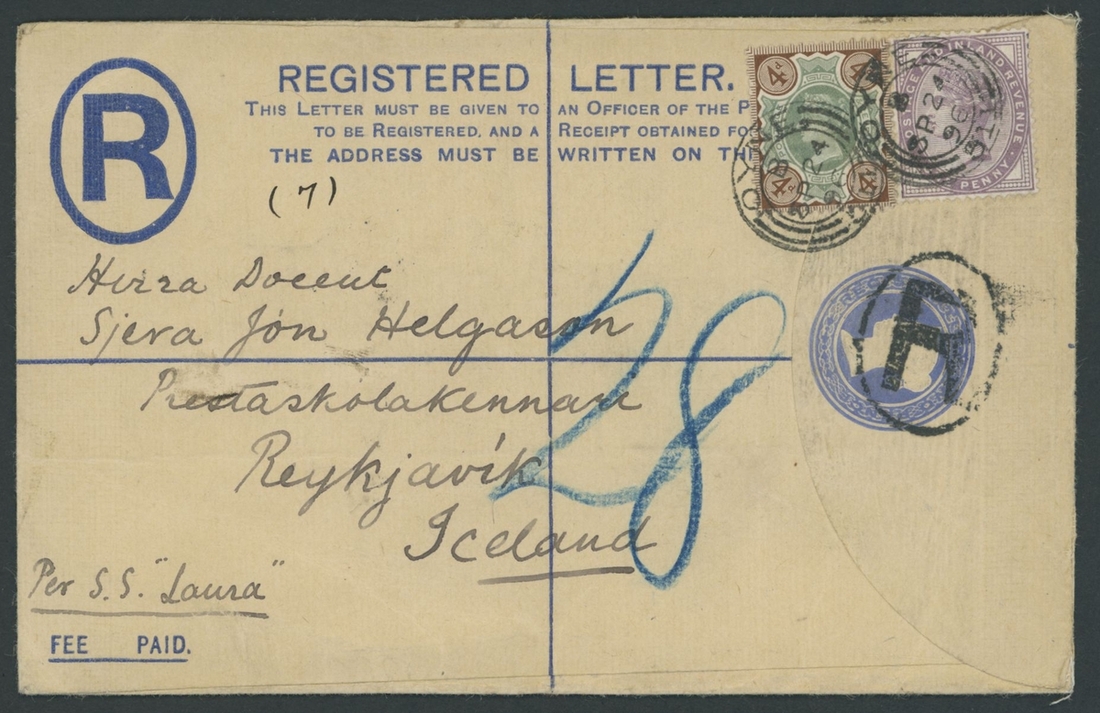 R
REGISTERED LETTER.
THIS LETTER MUST BE GIVEN TO AN OFFICER OF THE P
TO BE REGISTERED, AND A RECEIPT OBTAINED FO
THE ADDRESS MUST BE WRITTEN ON TH
(7)
4d
4d
4d
POSTAGE AND INLAND REVENUE
PENNY
SP 24
96
B
SP 24
Herra Docent
Sjera Jón Helgason
Prestaskolakennari
Reykjavík
Iceland
28
Per S.S. "Laura"
FEE PAID.